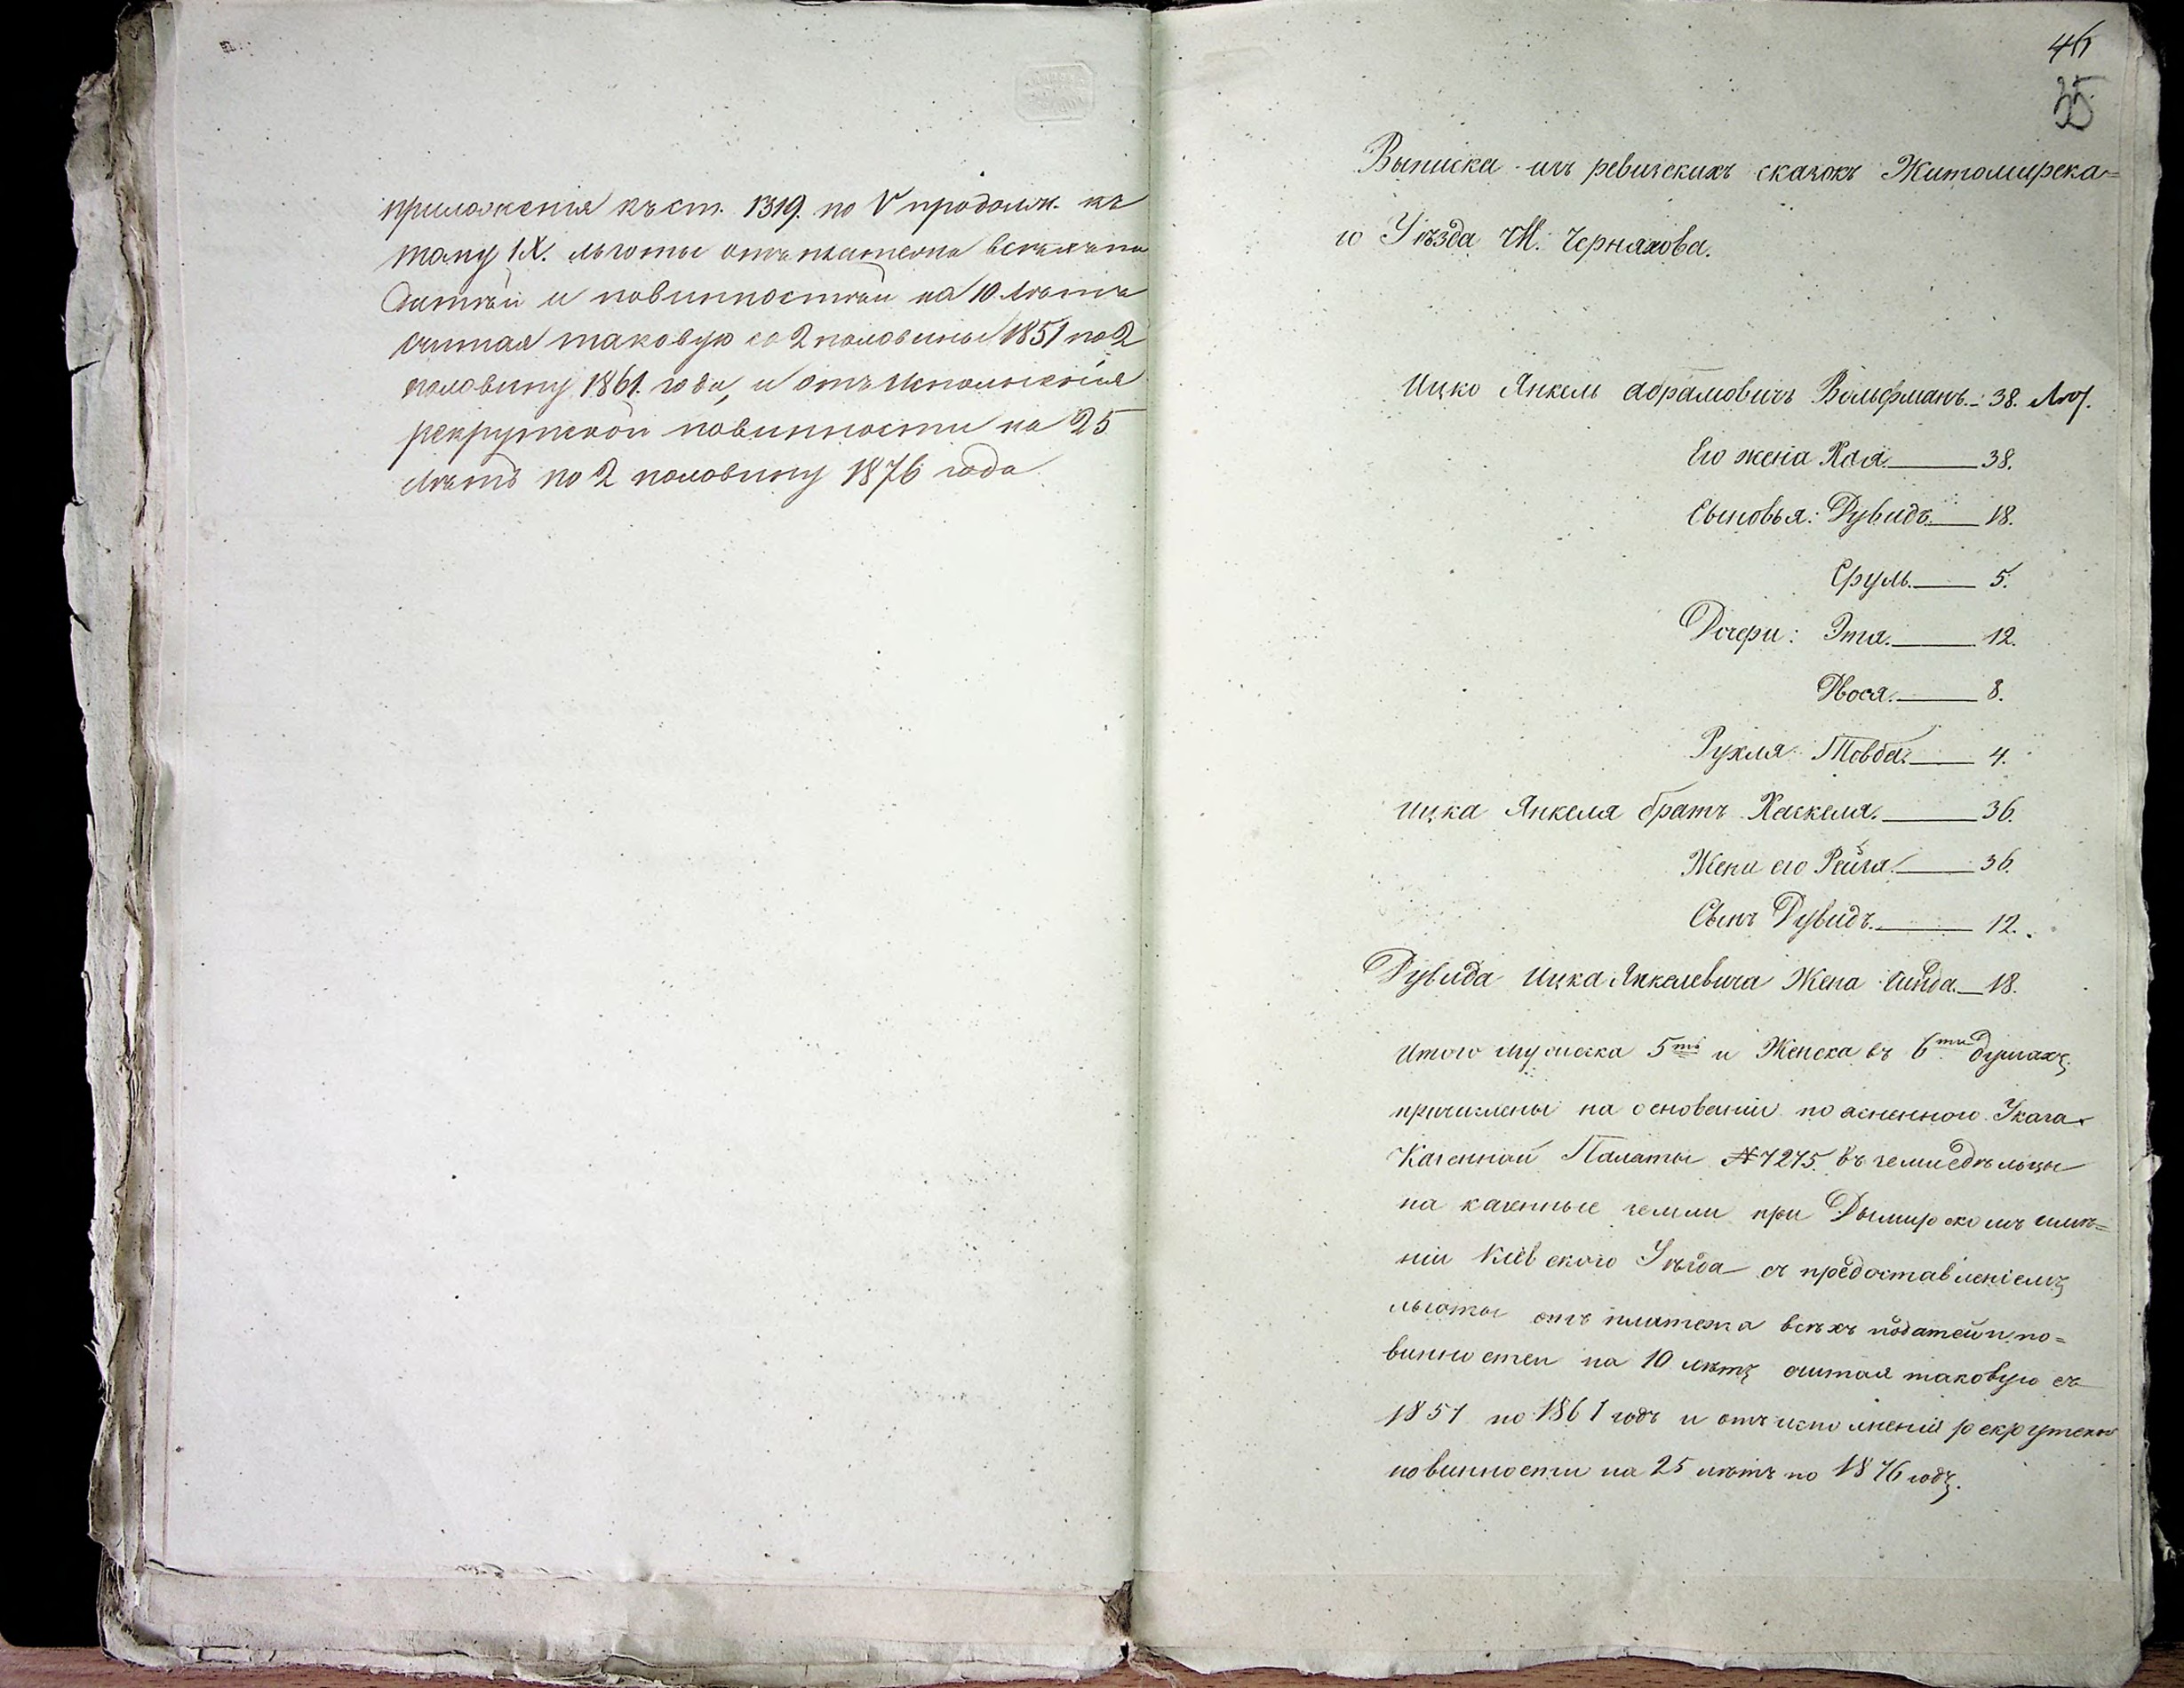 приложенія къ ст. 1319. по V продолж. къ
тому IX. льготы отъ платежа всѣхъ по
датѣй и повинностѣй на 10 лѣтъ
считая таковую со 2 половины 1851 по 2
половину 1861. года, и отъ исполненія
рекрутской повинности на 25
лѣтъ по 2 половину 1876 года.
46
35
Выписка изъ ревизскихъ сказокъ Житомирска=
го Уѣзда М. Черняхова.
Ицко Янкель Абрамовичъ Вольфманъ.- 38. Лѣт.
Его жена Хая. 38.
Сыновья: Дувидъ. 18.
Сруль. 5.
Дочери: Эта. 12.
Двося. 8.
Рухля Товба. 4.
Ицка Янкеля братъ Хаскеля. 36.
Жена его Рейза. 36.
Сынъ Дувидъ. 12.
Дувида Ицка Янкелевича Жена 18.
Итого мужеска 5ти и Женска въ 6ти душахъ
причислены на основаніи поясненного Указа
Казенной Палаты № 7275. въ земледѣльцы
на казенные земли при Дымирскомъ имѣ=
ніи Кіевского Уѣзда съ предоставленіемъ
льготы отъ платежа всѣхъ податей и по=
винностей на 10 лѣтъ считая таковую съ
1851 по 1861 годъ и отъ исполненія рекрутской
повинности на 25 лѣтъ по 1876 годъ.